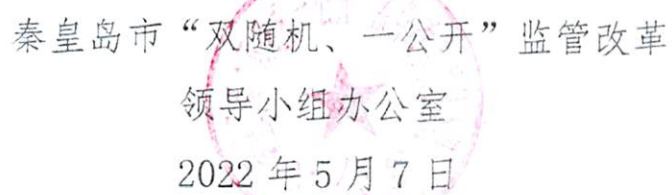 秦皇岛市“双随机、一公开”监管改革
领导小组办公室
2022年5月7日